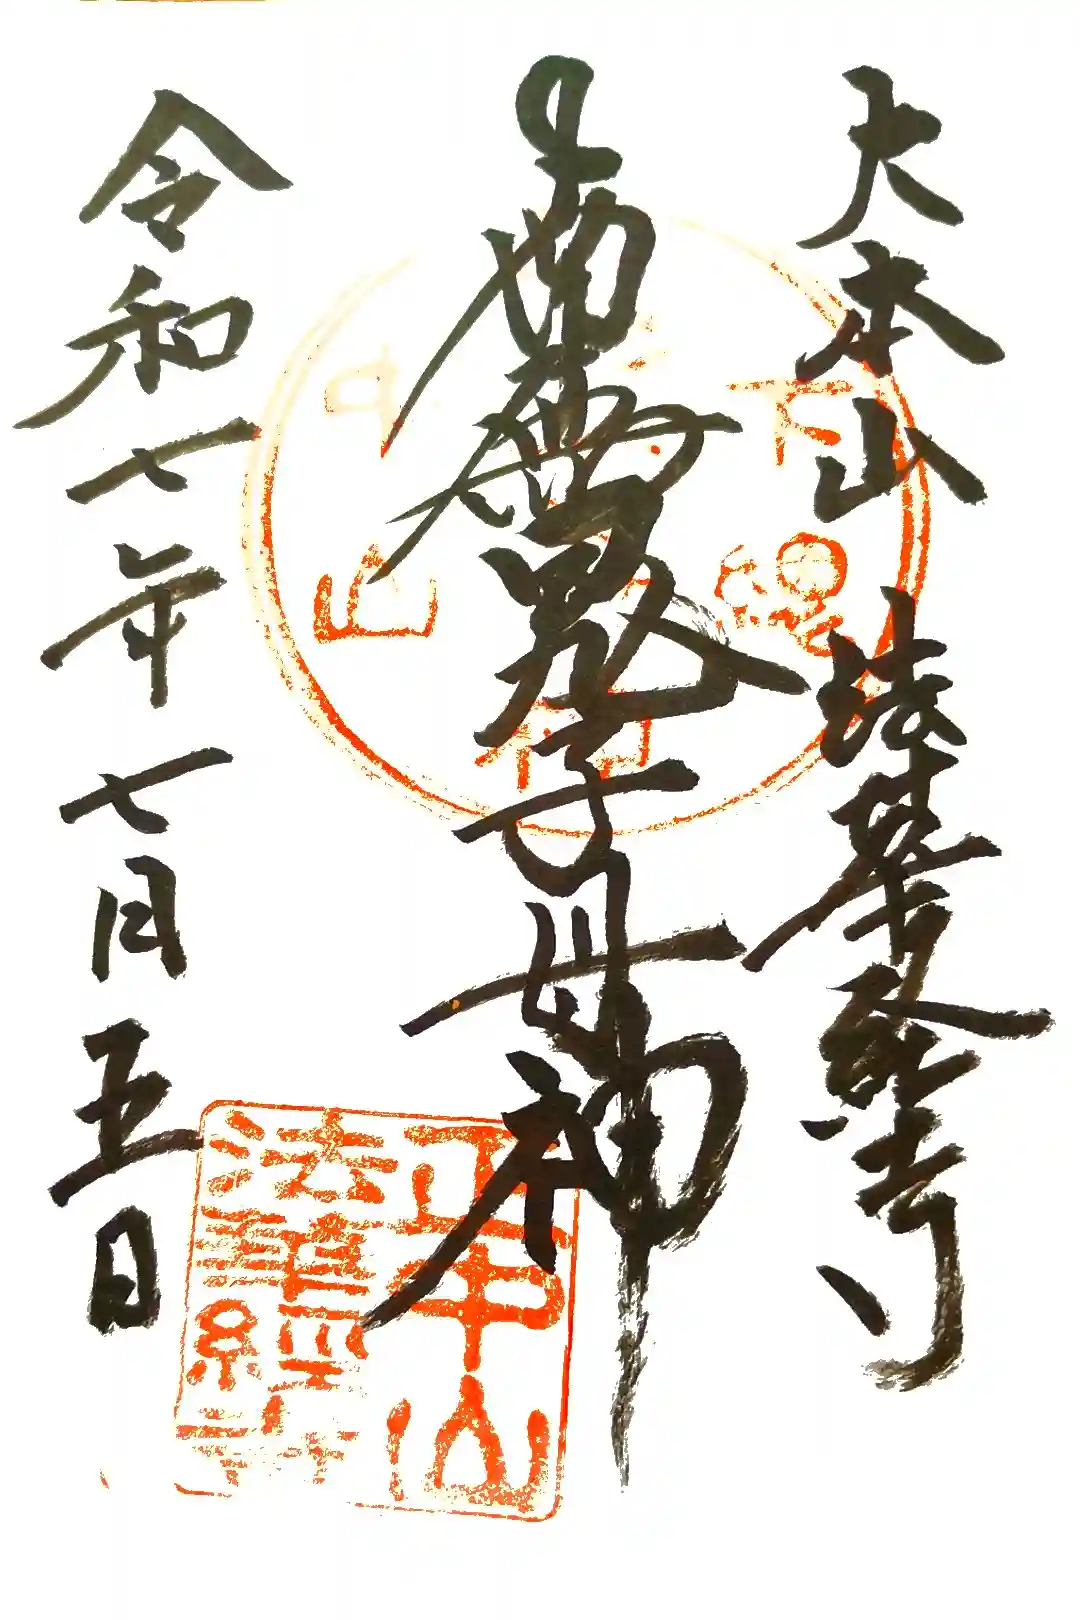 大本山 法華経寺
鬼子母神
令和七年七月五日
下總
中山
正中山
法華經寺